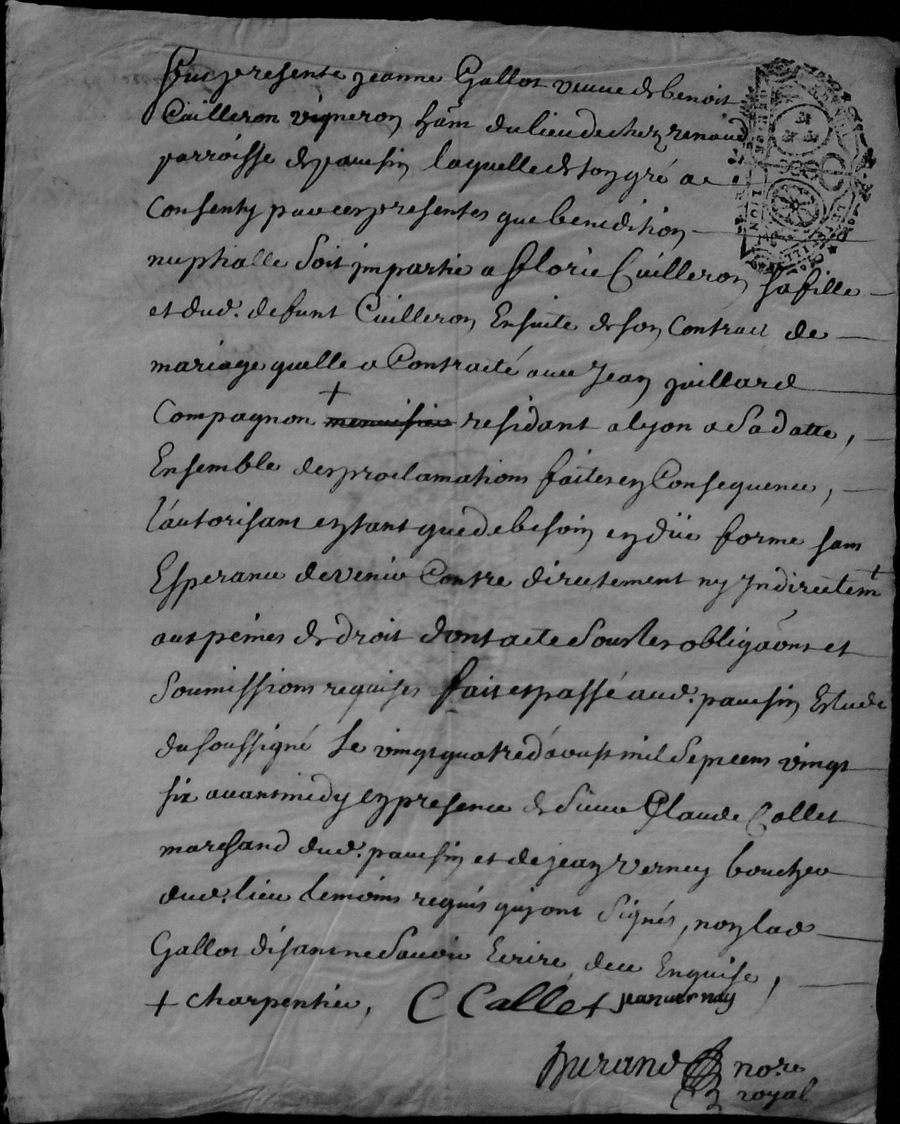 Fut presente jeanne Gallot veuve de benoit
Cuilleron vigneron hãnt du lieu de chez renaud
parroisse de pavesin laquelle de son gré a
Consenty par ces presentes que benediction
nuptialle soit jmpartie a florie Cuilleron sa fille
et dud. defunt Cuilleron Ensuite de son Contract de
mariage quelle a Contracté avec Jean gaillard
Compagnon + menuisier residant a lyon a sa datte,
Ensemble des proclamations faites en Consequence,
l'autorisant en tant que de besoin en düe forme sans
Esperance de venir Contre directement ny Indirectem̃t
aux peines de droit dont acte sous les obligãons et
soumissions requises fait et passé aud. pavesin Estude
du soussigné le vingt quatre d'aoust mil sept cens vingt
six avant midy en presence de sieur Claude Collet
marchand dud. pavesin et de jean Verney boucher
dud. lieu temoins requis qui ont signés, non lad
Gallot disant ne savoir Ecrire de ce Enquise,
+ charpentier, C Collet jean verney
Durand no.re
royal